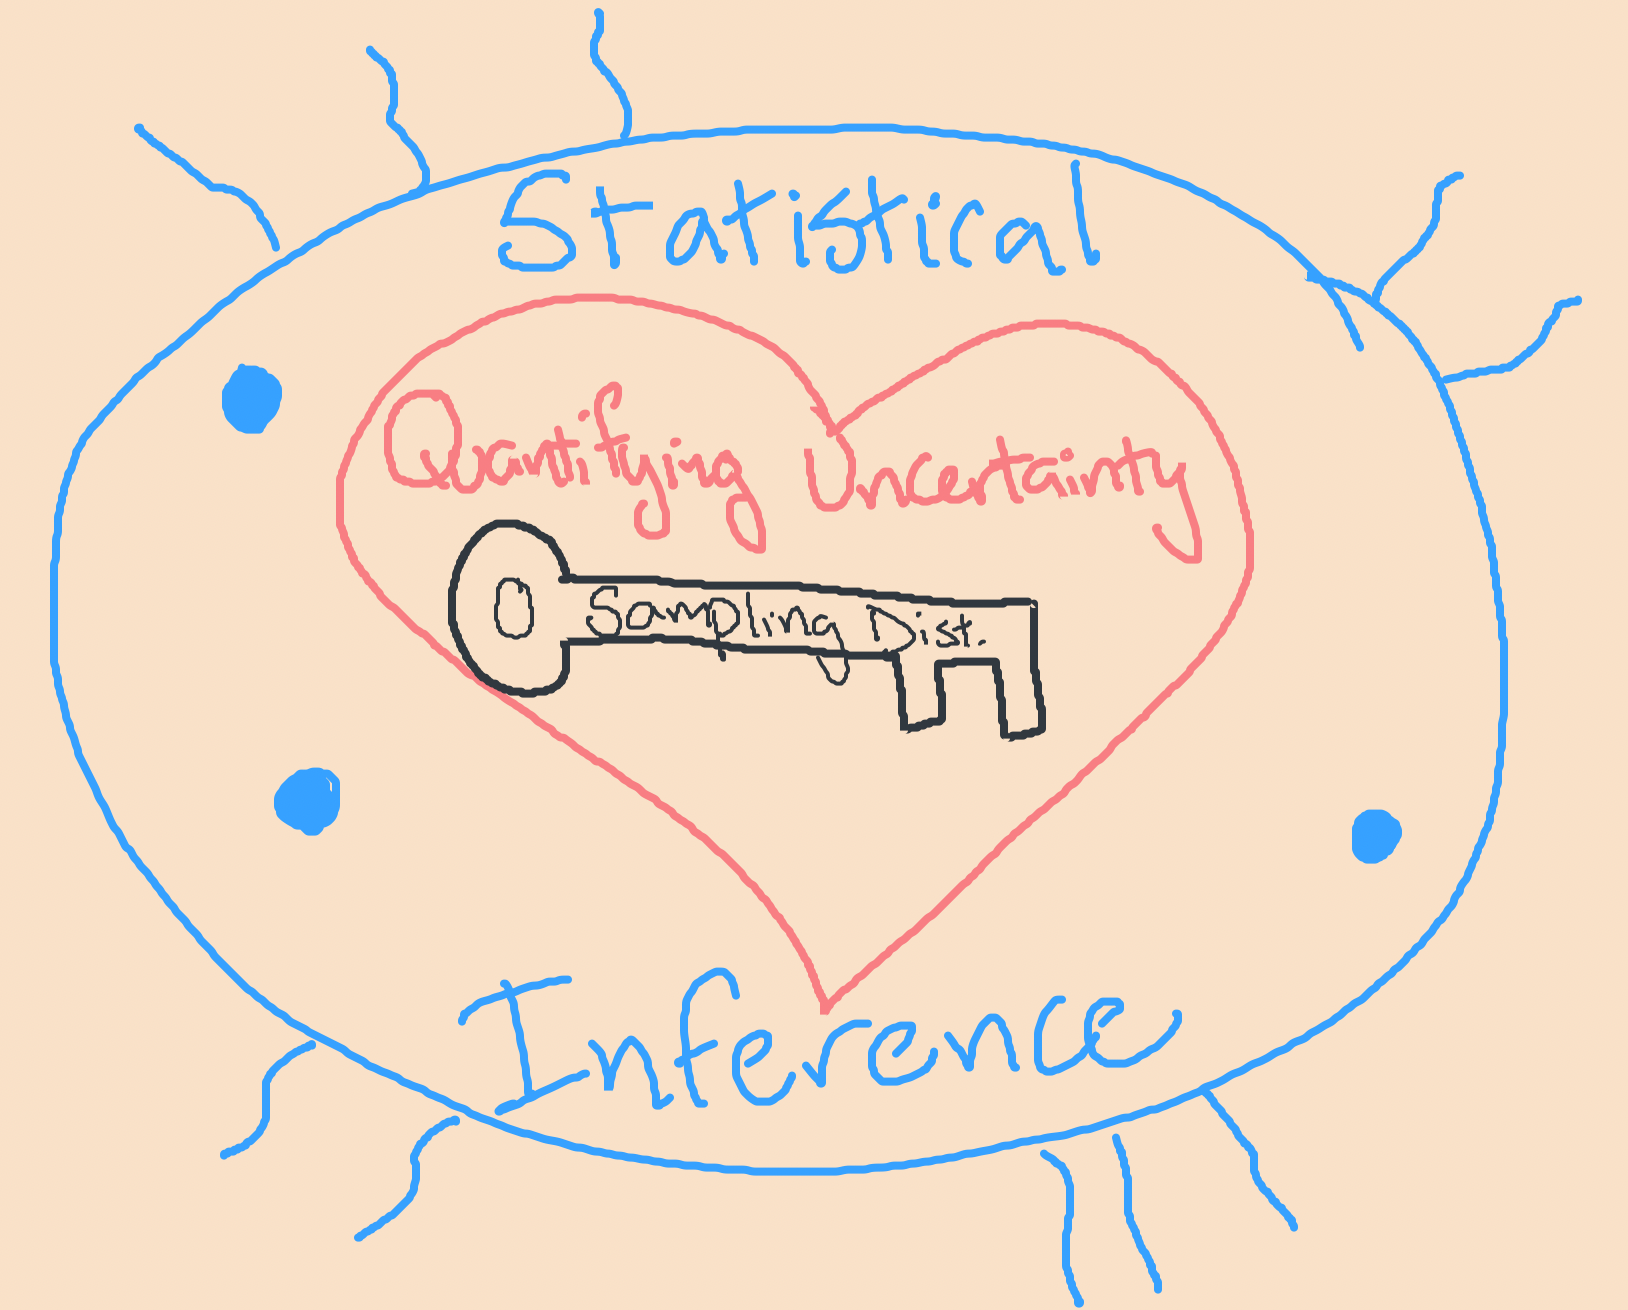 Statistical
Quantifying Uncertainty
Sampling Dist.
Inference